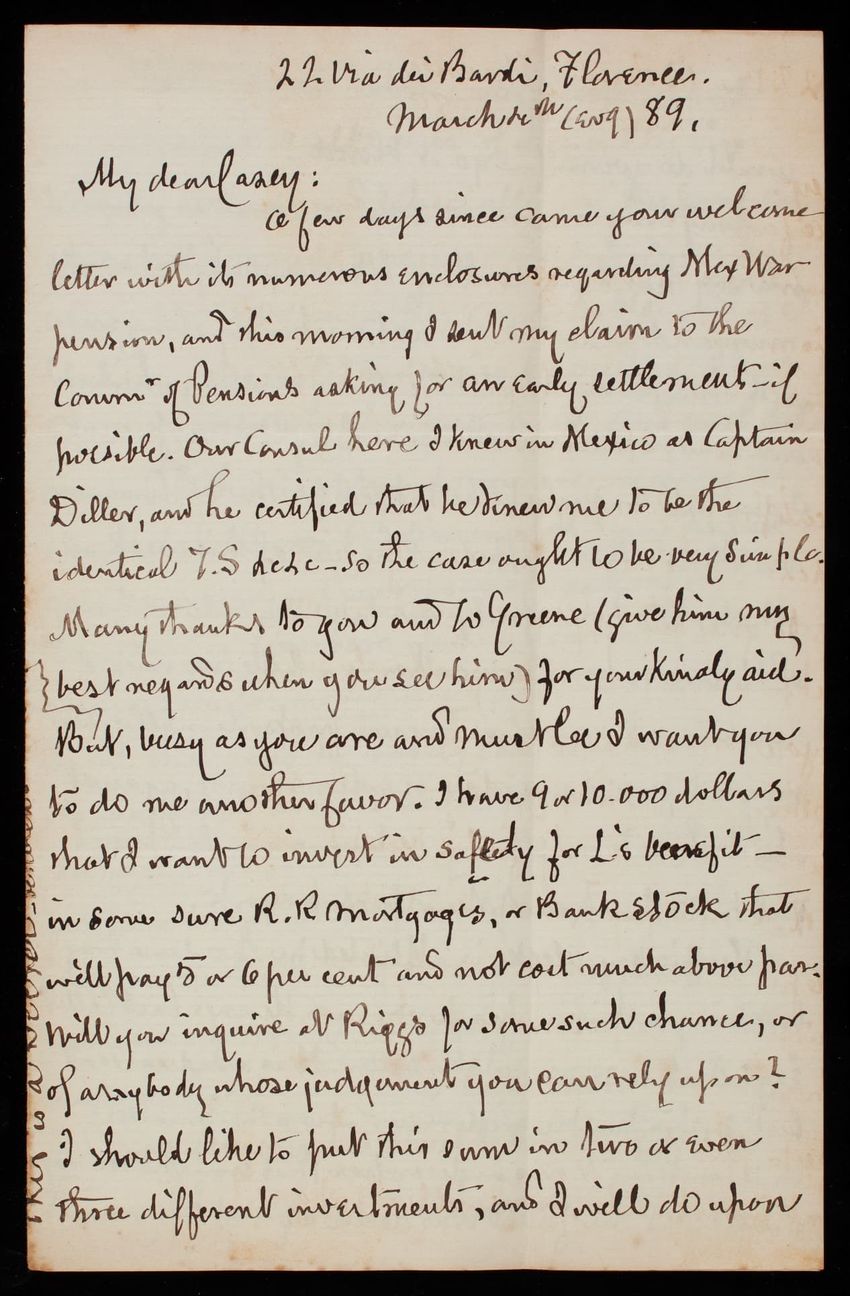 22 Via dei Bardi, Florence.
March (Evg) 89.
My dear Casey:
A few days since came your welcome
letter with its numerous enclosures regarding Mex War
pension, and this morning I sent my claim to the
Commr of Pensions asking for an early settlement - if
possible. Our Consul here I knew in Mexico as Captain
Diller, and he certified that he knew me to be the
identical T.S &c &c - so the case ought to be very simple.
Many thanks to you and to Greene (give him my
best regards when you see him) for your kindly aid.
But, busy as you are and must be I want you
to do me another favor. I have 9 or 10.000 dollars
that I want to invest in safety for L's benefit -
in some sure R.R mortgages, or Bank stock that
will pay 5 or 6 per cent and not cost much above par.
Will you inquire at Riggs for some such chance, or
of anybody whose judgement you can rely upon?
I should like to put this sum in two or even
three different investments, and I will do upon
this is a